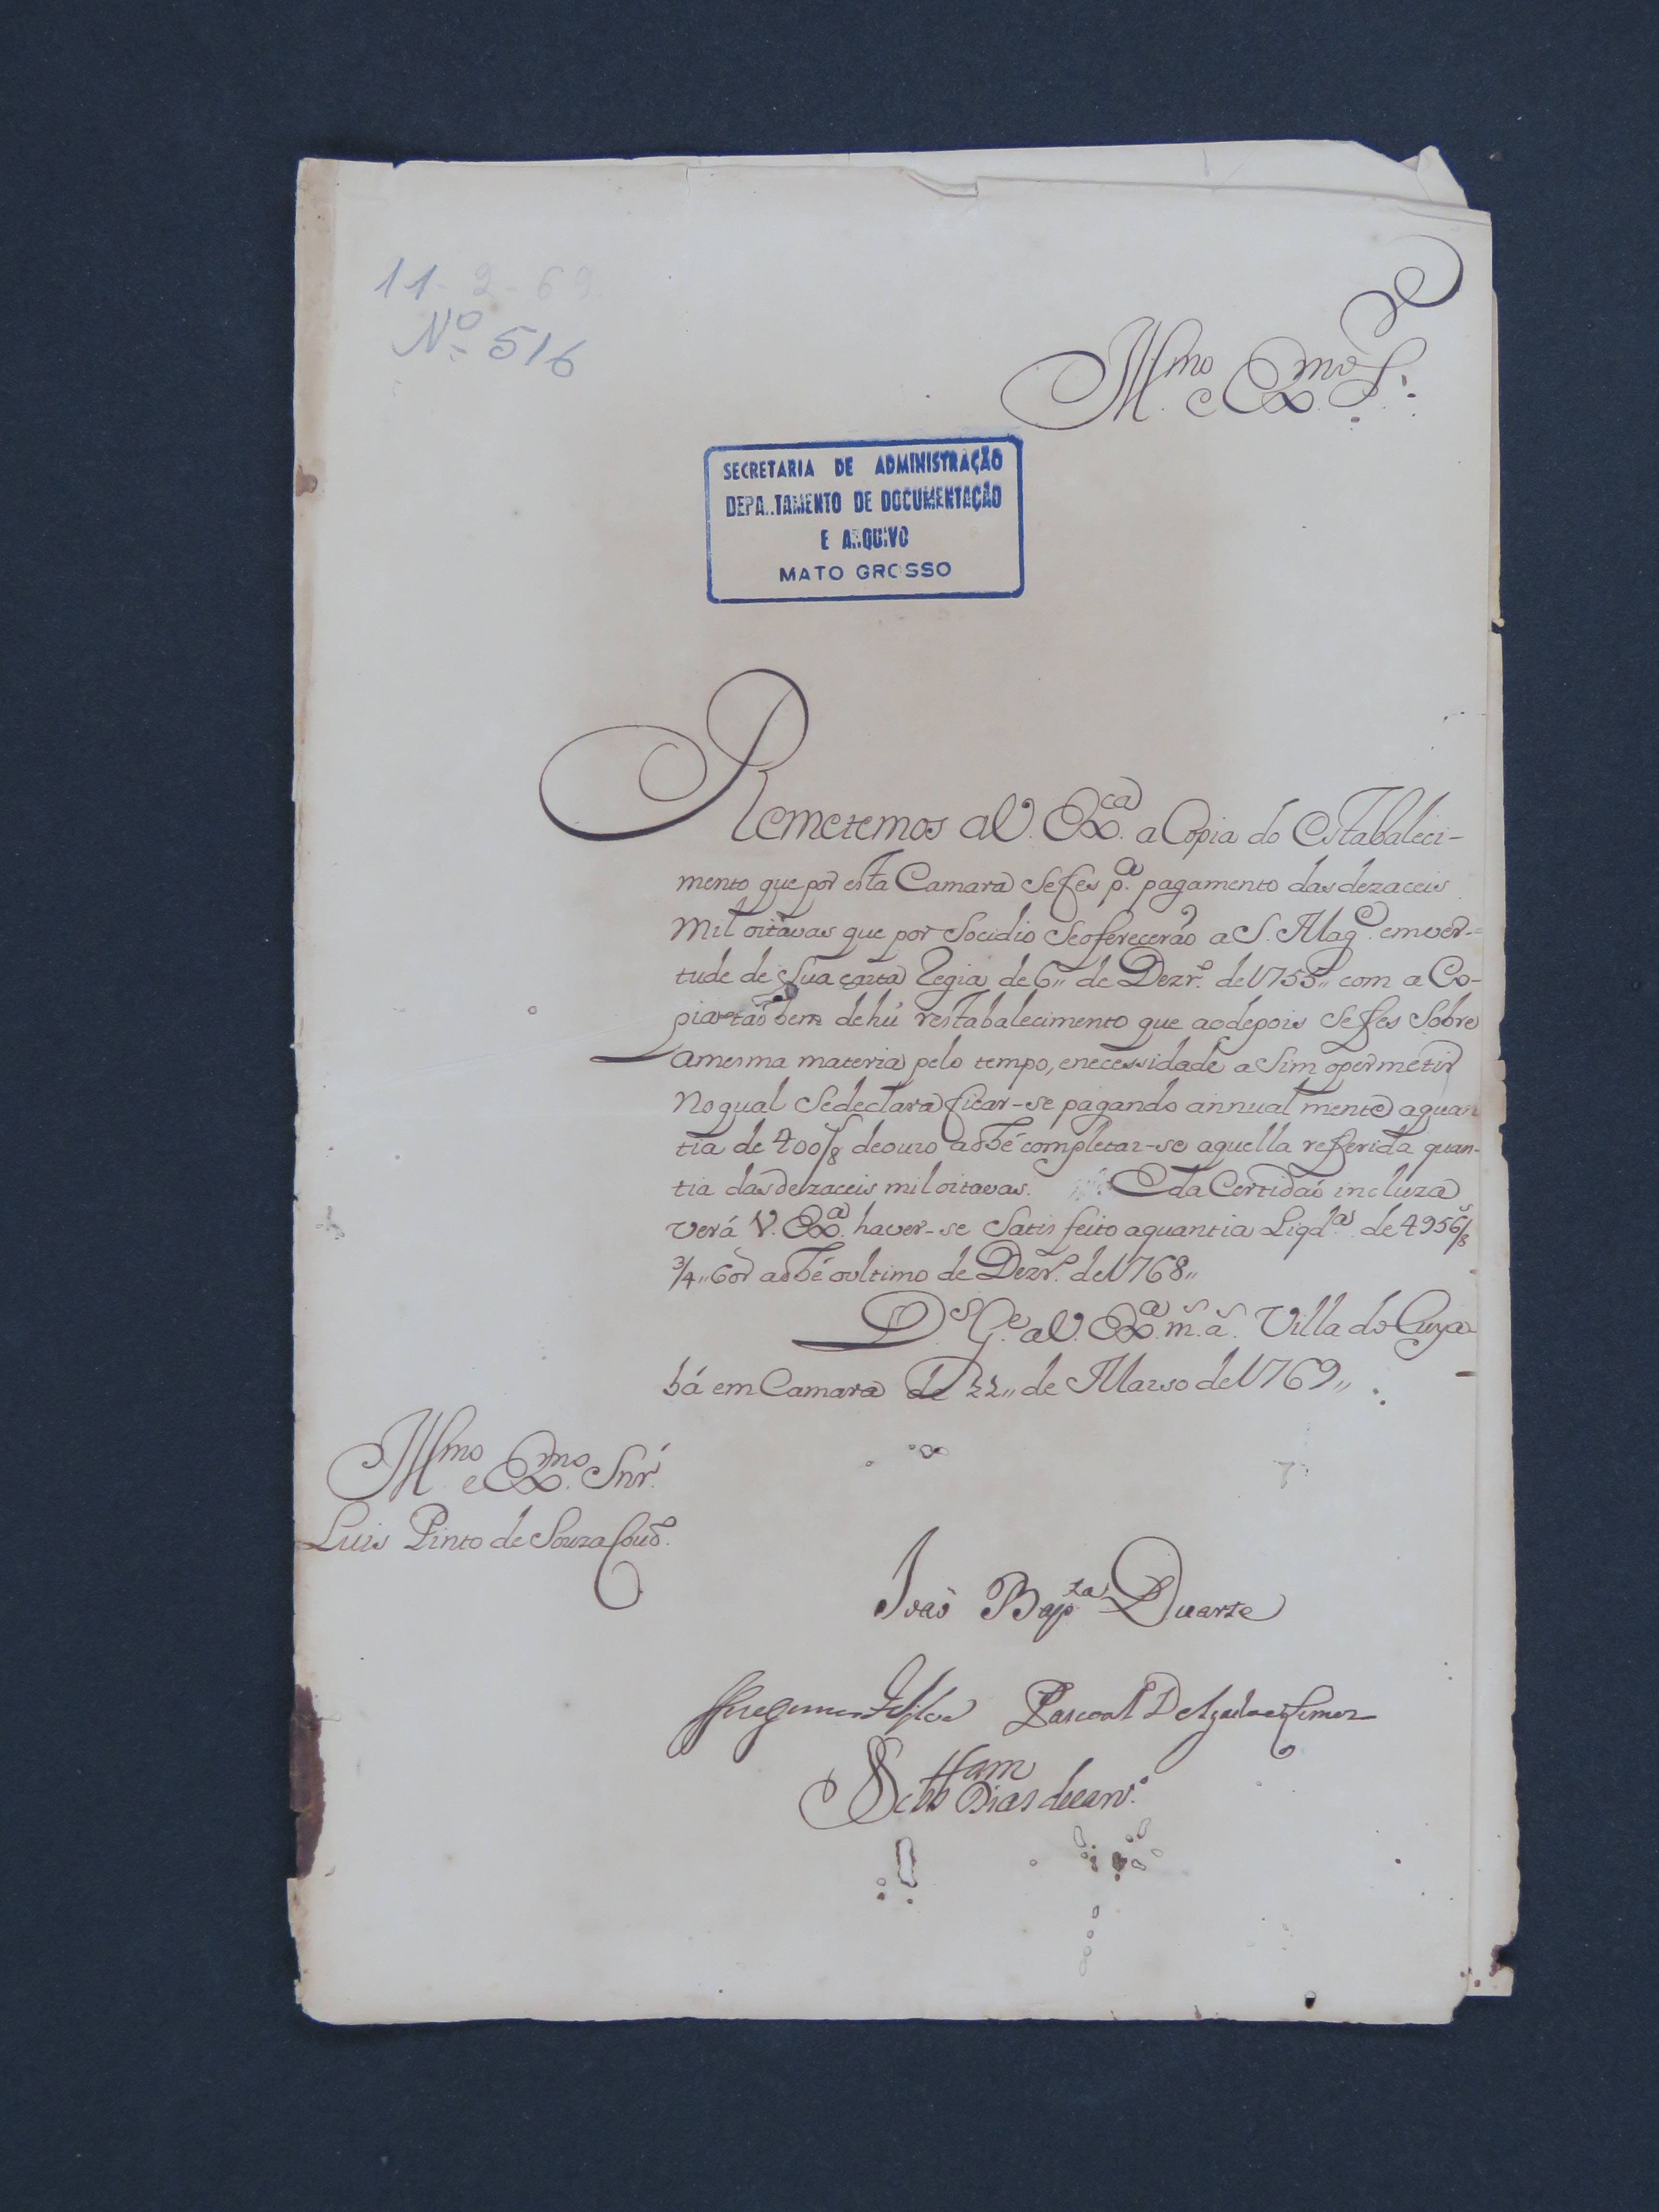 11-2-69
Nº 516
Illmo. e Exmo. S.
SECRETARIA DE ADMINISTRAÇÃO
DEPA..TAMENTO DE DOCUMENTAÇÃO
E ARQUIVO
MATO GROSSO
Remetemos aV. Exca. a Copia do Estabaleci-
mento que por esta Camara Sefes pa. pagamento das dezaceis
Mil oitavas que por Socidio Seoferecerão a S. Mage. emver-
tude de Sua carta Regia de 6,, de Dezro. de 1755,, com a Co-
pia tãobem de hú restabalecimento que aodepois Sefes Sobre
amesma materia pelo tempo, enecessidade aSim opermetir
No qual Sedeclara ficar-se pagando annual mente aquan
tia de 400/8 deouro athé completar-se aquella referida quan-
tia das dezaceis mil oitavas. E da Certidaõ incluza
verá V. Exa. haver-se Satis feito aquantia Liqda. de 4956/8
3/4,, athé oultimo de Dezro. de 1768,,
Ds. Ge. aV. Exa. ms. as. Villa do Cuya
bá em Camara de 22,, de Marso de 1769,,
Illmo. e Exmo. Snr.
Luis Pinto de Souza Couto.
Joaõ Bapta. Duarte
Pascoal Delgado Lemos
Sebb Dias